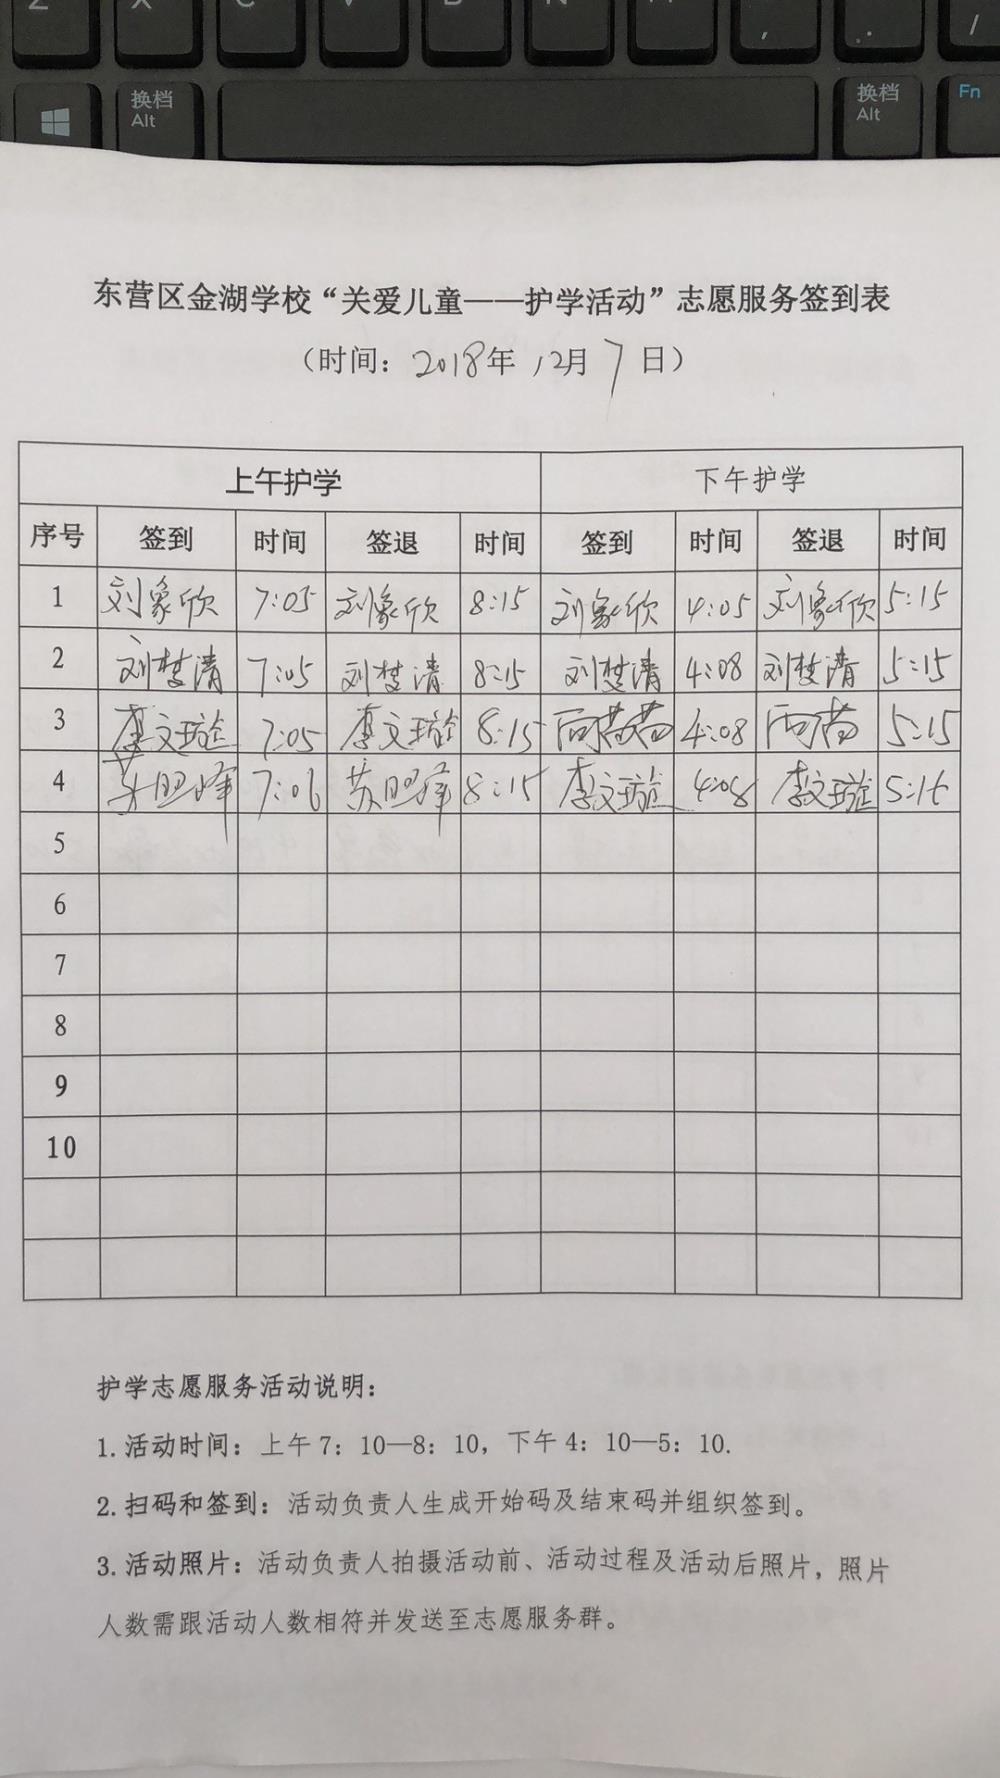 Z X C V B N M , . /
换档 换档 Fn
Alt Alt
东营区金湖学校“关爱儿童——护学活动”志愿服务签到表
（时间：2018年 12月 7 日）
上午护学 下午护学
序号 签到 时间 签退 时间 签到 时间 签退 时间
1 刘象欣 7:05 刘象欣 8:15 刘象欣 4:05 刘象欣 5:15
2 刘梦清 7:05 刘梦清 8:15 刘梦清 4:08 刘梦清 5:15
3 李文璇 7:05 李文璇 8:15 4:08 5:15
4 7:06 8:15 李文璇 4:08 李文璇 5:15
5
6
7
8
9
10
护学志愿服务活动说明：
1. 活动时间：上午 7：10—8：10，下午 4：10—5：10.
2. 扫码和签到：活动负责人生成开始码及结束码并组织签到。
3. 活动照片：活动负责人拍摄活动前、活动过程及活动后照片，照片
人数需跟活动人数相符并发送至志愿服务群。